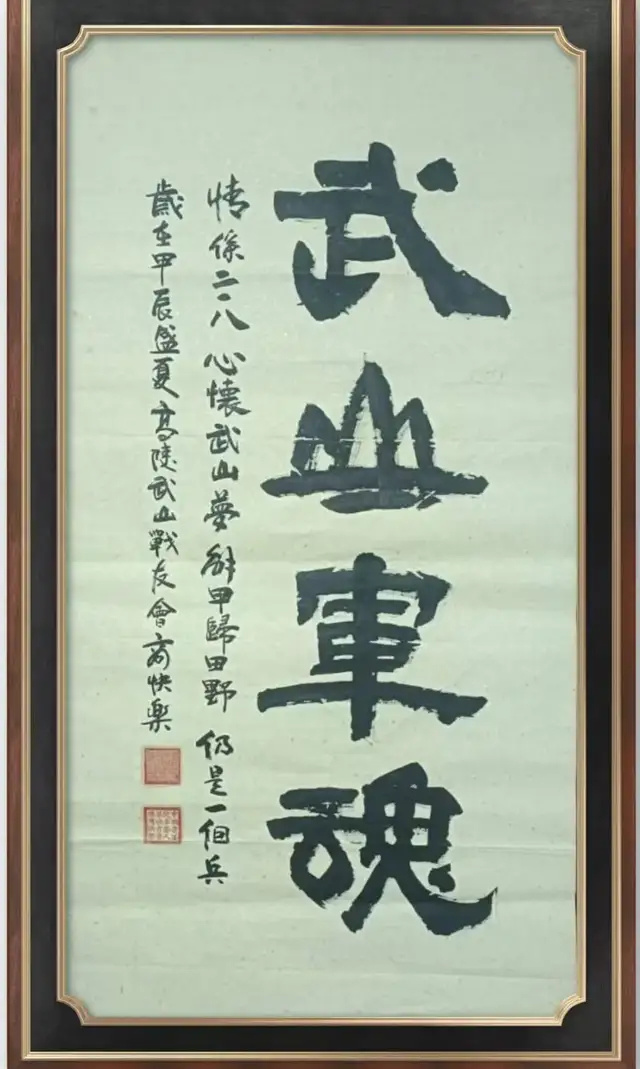 武山軍魂
情係二一八 心懷武山夢 解甲歸田野 仍是一個兵
歲在甲辰盛夏 高陵武山戰友會 商快樂